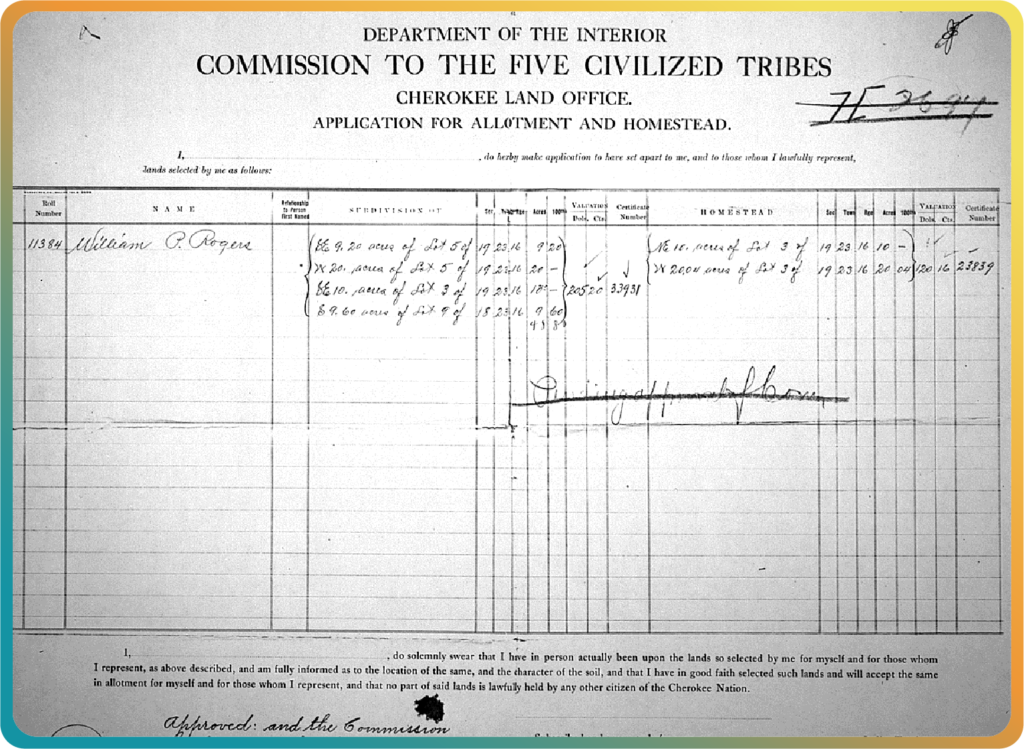 DEPARTMENT OF THE INTERIOR
COMMISSION TO THE FIVE CIVILIZED TRIBES
CHEROKEE LAND OFFICE.
APPLICATION FOR ALLOTMENT AND HOMESTEAD.
I, , do herby make application to have set apart to me, and to those whom I lawfully represent,
lands selected by me as follows:
Roll Number NAME Relationship to Person First Named SUBDIVISION OF Sec. Town Rge. Acres 100ths VALUATION Dols. Cts. Certificate Number HOMESTEAD Sec Town Rge Acres 100ths VALUATION Dols. Cts. Certificate Number
11384 William P. Rogers 9.20 acres of Lot 5 of 19 23 16 9 20 10. acres of Lot 3 of 19 23 16 10 –
W 20. acres of Lot 5 of 19 23 16 20 – W 20.04 acres of Lot 3 of 19 23 16 20 04 120 16 23839
10. acres of Lot 3 of 19 23 16 10 – 205 20 33931
E 9.60 acres of Lot 9 of 18 23 16 9 60
I, , do solemnly swear that I have in person actually been upon the lands so selected by me for myself and for those whom
I represent, as above described, and am fully informed as to the location of the same, and the character of the soil, and that I have in good faith selected such lands and will accept the same
in allotment for myself and for those whom I represent, and that no part of said lands is lawfully held by any other citizen of the Cherokee Nation.
Approved: and the Commission